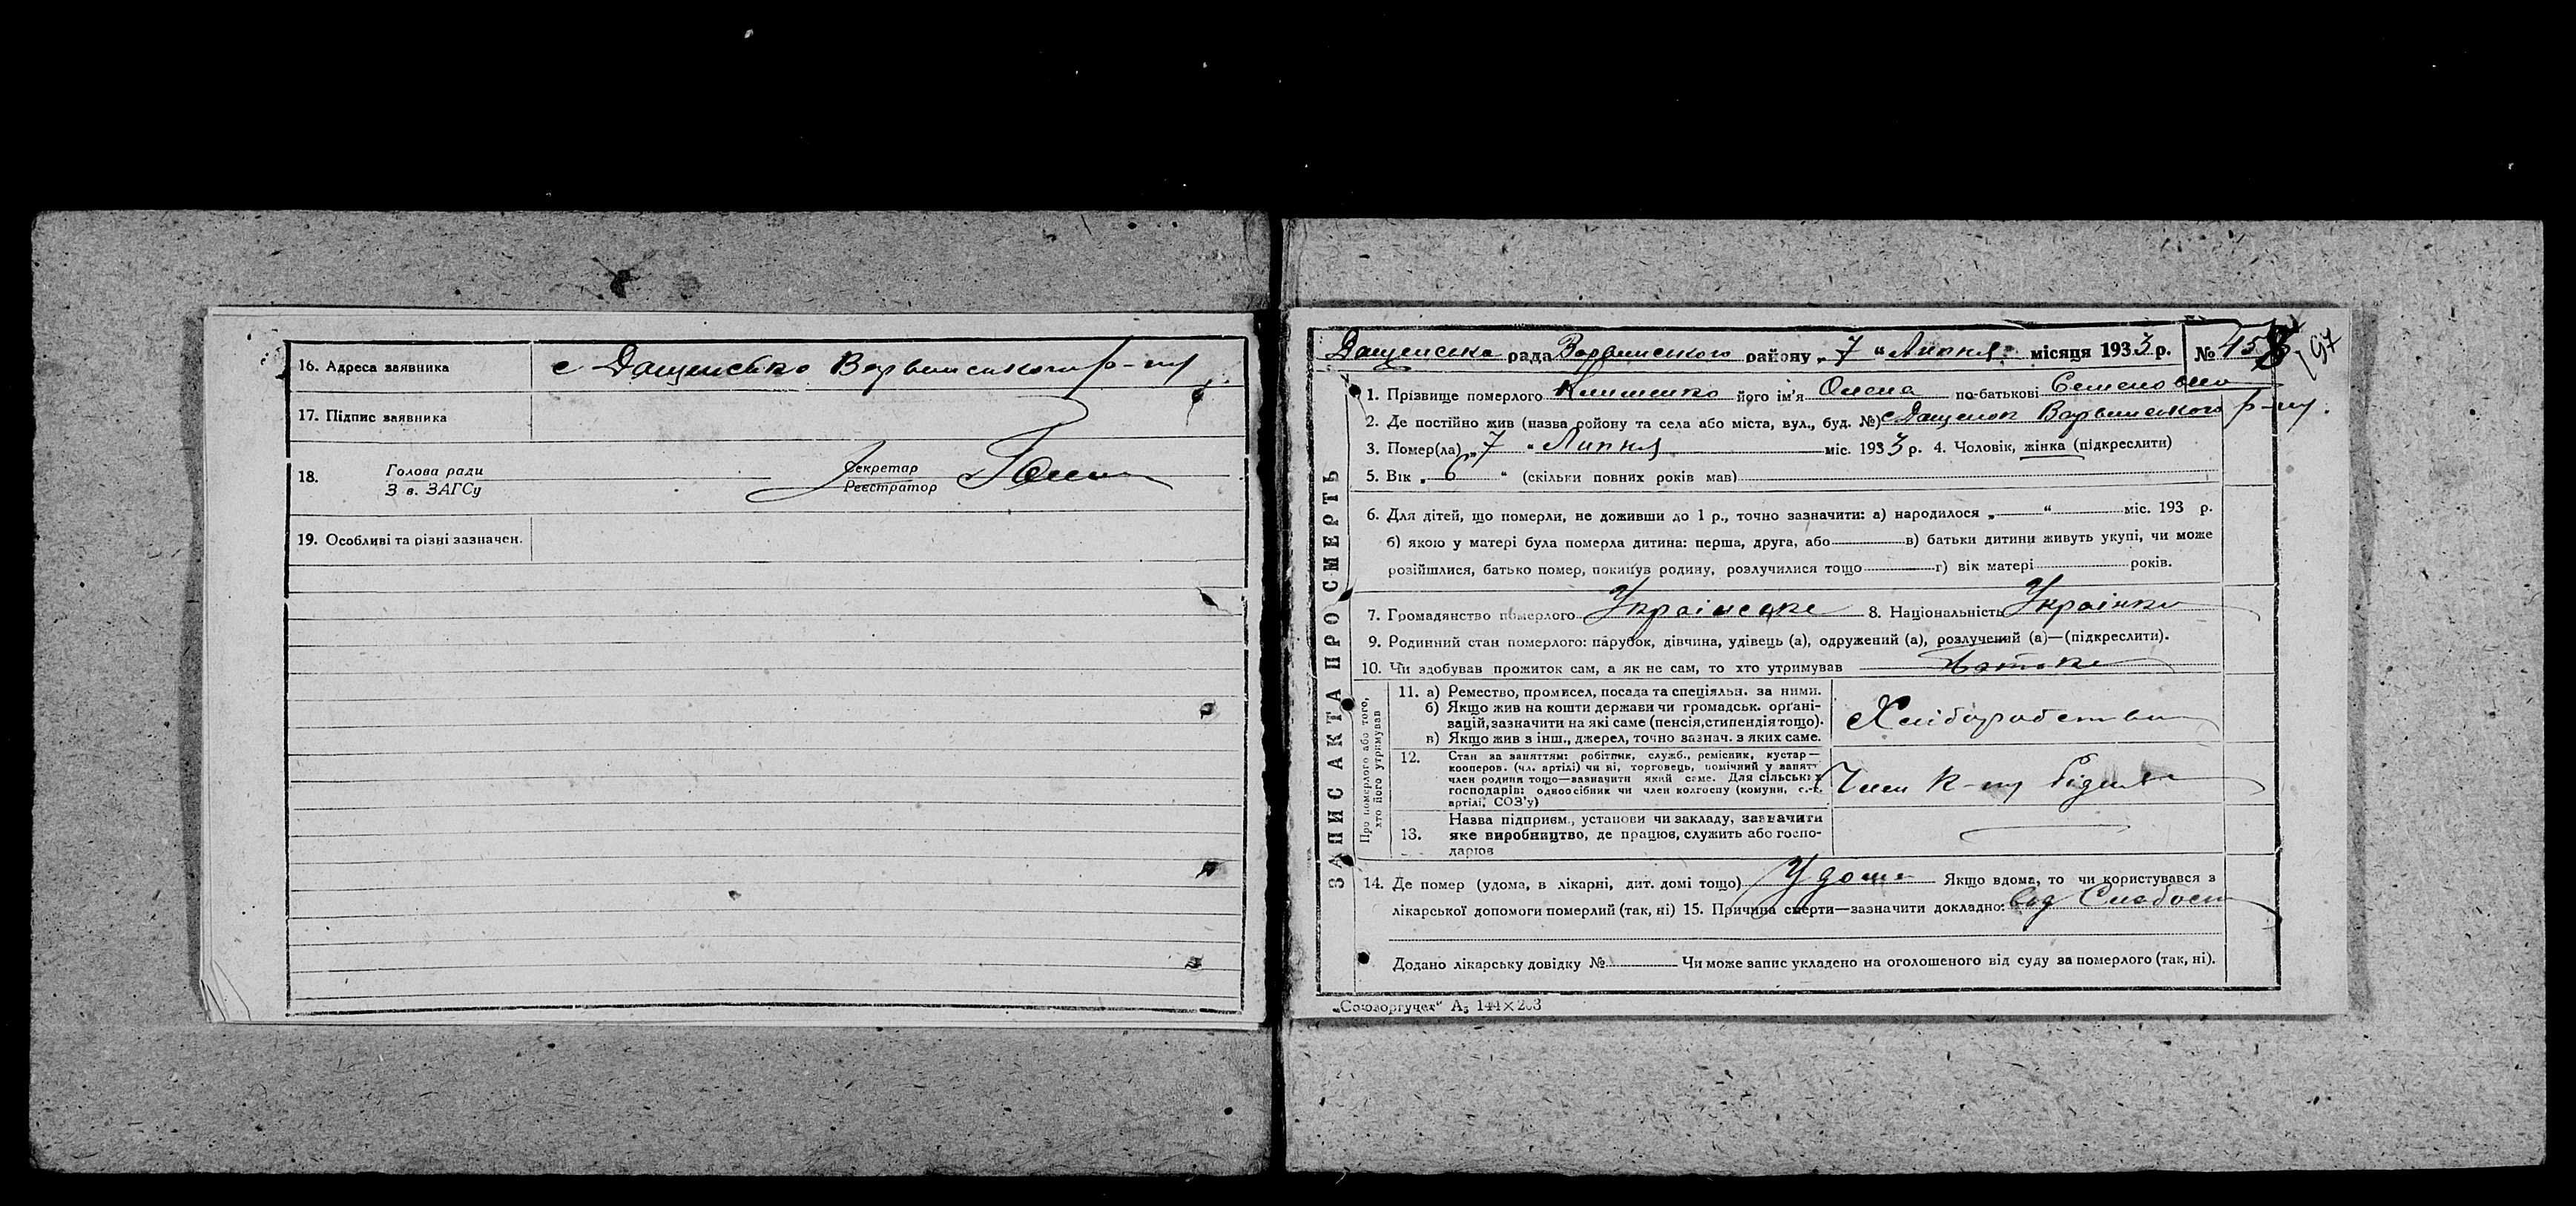 16. Адреса заявника с Дащенково Варвинського р-ну
17. Підпис заявника
18. Голова ради З в. ЗАГСу Секретар Реєстратор
19. Особливі та різні зазначен.
Дащенська рада Варвинського району „ 7 “ Липня місяця 1933 р. № 458
197
1. Прізвище померлого Клименко його ім'я Олена по-батькові Семеновна
2. Де постійно жив (назва району та села або міста, вул., буд. №) с Дащенки Варвинського р-ну.
3. Помер(ла) „ 7 “ Липня міс. 1933 р. 4. Чоловік, жінка (підкреслити)
5. Вік „ 6 “ (скільки повних років мав)
6. Для дітей, що померли, не доживши до 1 р., точно зазначити: а) народилося „ “ міс. 193 р.
б) якою у матері була померла дитина: перша, друга, або в) батьки дитини живуть укупі, чи може
розійшлися, батько помер, покинув родину, розлучилися тощо г) вік матері років.
7. Громадянство померлого Українське 8. Національність Українка
9. Родинний стан померлого: парубок, дівчина, удівець (а), одружений (а), розлучений (а)—(підкреслити).
10. Чи здобував прожиток сам, а як не сам, то хто утримував Батько
ЗАПИС АКТА ПРО СМЕРТЬ
Про померлого або того,
хто його утримував
11. а) Ремество, промисел, посада та спеціяльн. за ними.
б) Якщо жив на кошти держави чи громадськ. орґані-
зацій, зазначити на які саме (пенсія, стипендія тощо).
в) Якщо жив з інш., джерел, точно зазнач. з яких саме.
Хліборобство
12. Стан за заняттям: робітник, служб., ремісник, кустар—
кооперов. (чл. артілі) чи ні, торговець, помічний у занятт
член родини тощо—зазначити який саме. Для сільських
господарів: одноосібник чи член колгоспу (комуни, с.-г.
артілі, СОЗ'у)
Член к-пу
13. Назва підприєм., установи чи закладу, зазначити
яке виробництво, де працює, служить або госпо-
дарює
14. Де помер (удома, в лікарні, дит. домі тощо) У дома Якщо вдома, то чи користувався з
лікарської допомоги померлий (так, ні) 15. Причина смерти—зазначити докладно: від Слабости
Додано лікарську довідку № Чи може запис укладено на оголошеного від суду за померлого (так, ні).
„Союзоргучет“ А5 144×203